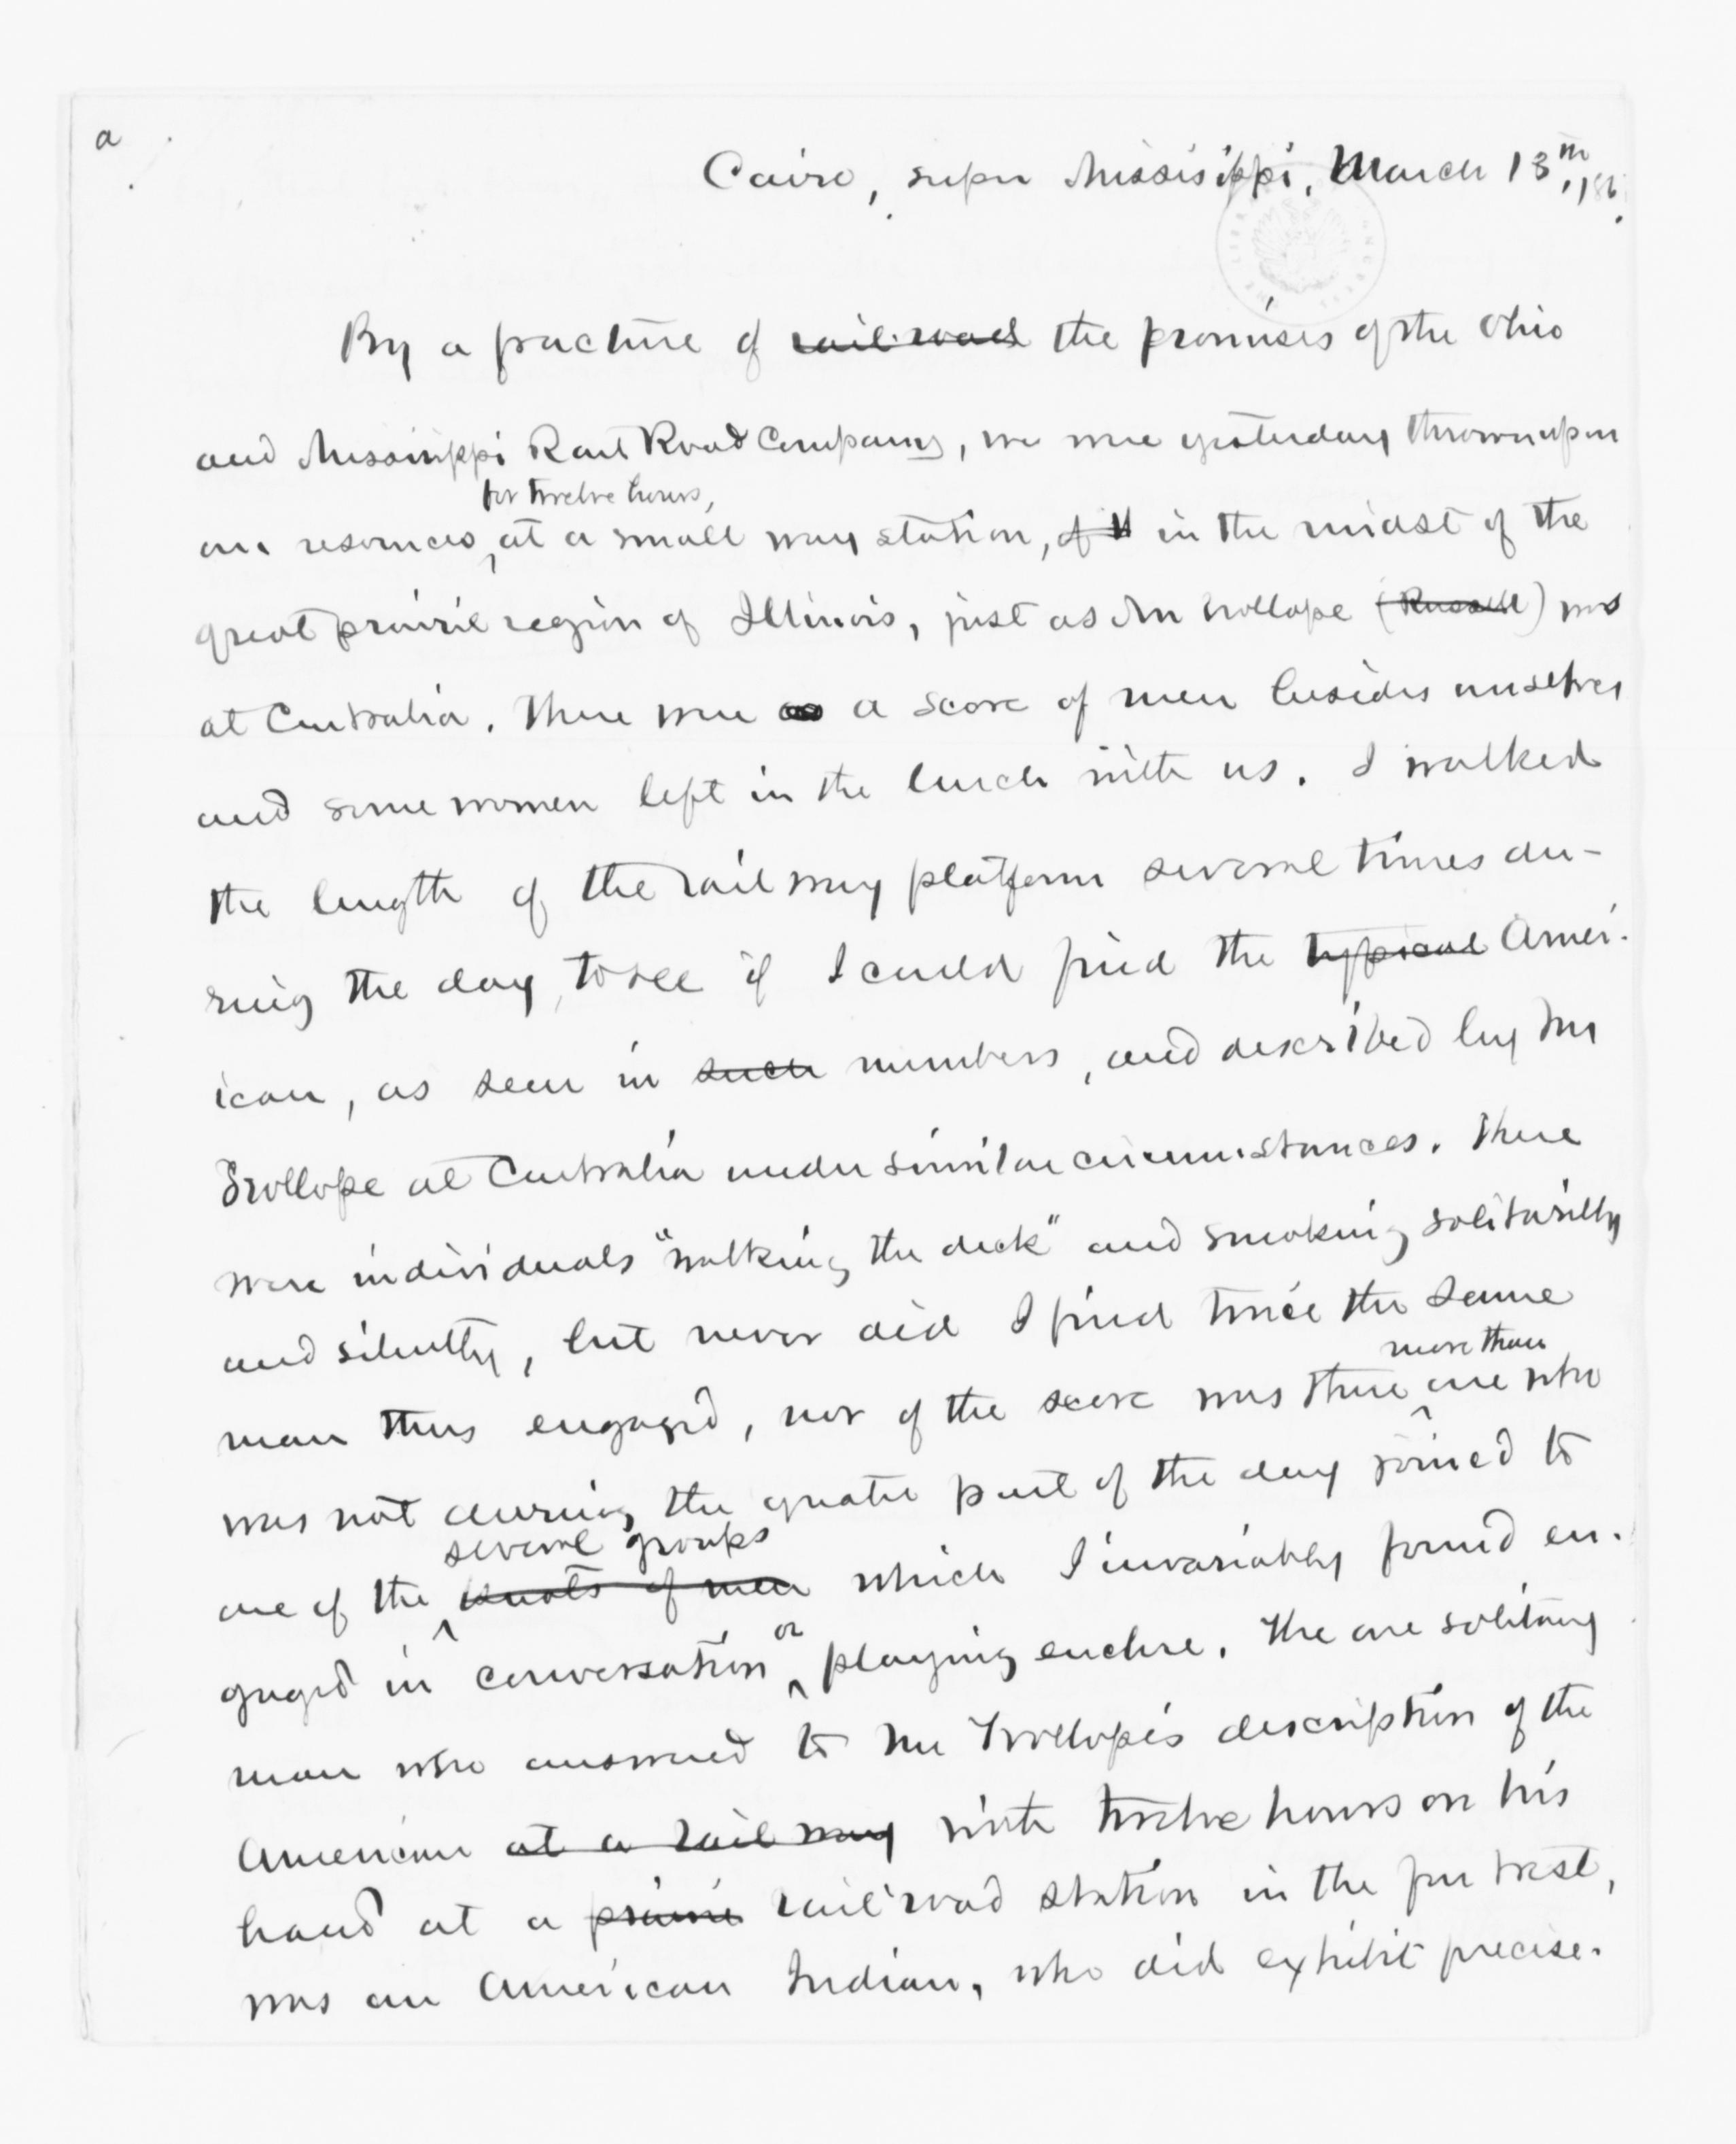 a
Cairo, super Mississippi, March 13th, 186
By a fracture of rail-road the promises of the Ohio
and Mississippi Rail Road Company, we were yesterday thrown upon
for twelve hours,
our resources, at a small way station, of in the midst of the
great prairie region of Illinois, just as Mr Trollope (Russell) was
at Centralia. There were a score of men besides ourselves
and some women left in the lurch with us. I walked
the length of the railway platform several times du-
ring the day, to see if I could find the typical Amer-
ican, as seen in such numbers, and described by Mr
Trollope at Centralia under similar circumstances. There
were individuals "walking the deck" and smoking solitarilly
and silently, but never did I find twice the same
more than
man thus engaged, nor of the score was there one who
was not during the greater part of the day joined to
several groups
one of the knots of men which I invariably found en-
or
gaged in conversation playing euchre. The one solitary
man who answered to Mr Trollope's description of the
American at a rail way with twelve hours on his
hand at a prairie rail road station in the far west,
was an American Indian, who did exhibit precise-